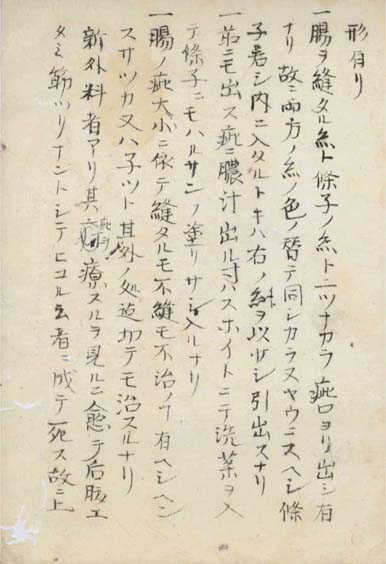 形有リ
一腸ヲ縫タル糸ト條子ノ糸ト二ツナカラ疵口ヨリ出シ有
ナリ故ニ両方ノ糸ノ色ノ替テ同シカラスヤウニスヘシ條
子若シ内ニ入タルトキハ右ノ糸ヲ以少シ引出スナリ
一前ニモ出ス疵ニ膿汁出ル寸ハスホイトニテ洗薬ヲ入
テ條子ニモハルサンノ塗リサシ入ルナリ
一腸ノ疵大小ニ依テ縫タルモ不縫モ不治ノ有ヘシヘン
スサツカ又ハ子ツト其外ノ処迠切テモ治スルナリ
新外料者アリ其疵ヲ療スルヲ見ルニ愈テ后肢エ
タミ筋ツリナントシテヒユル者ニ成テ死ス故ニ上